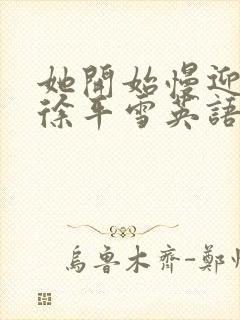 她開始慢迎
徐平雪英語
烏魯木齊-鄭州